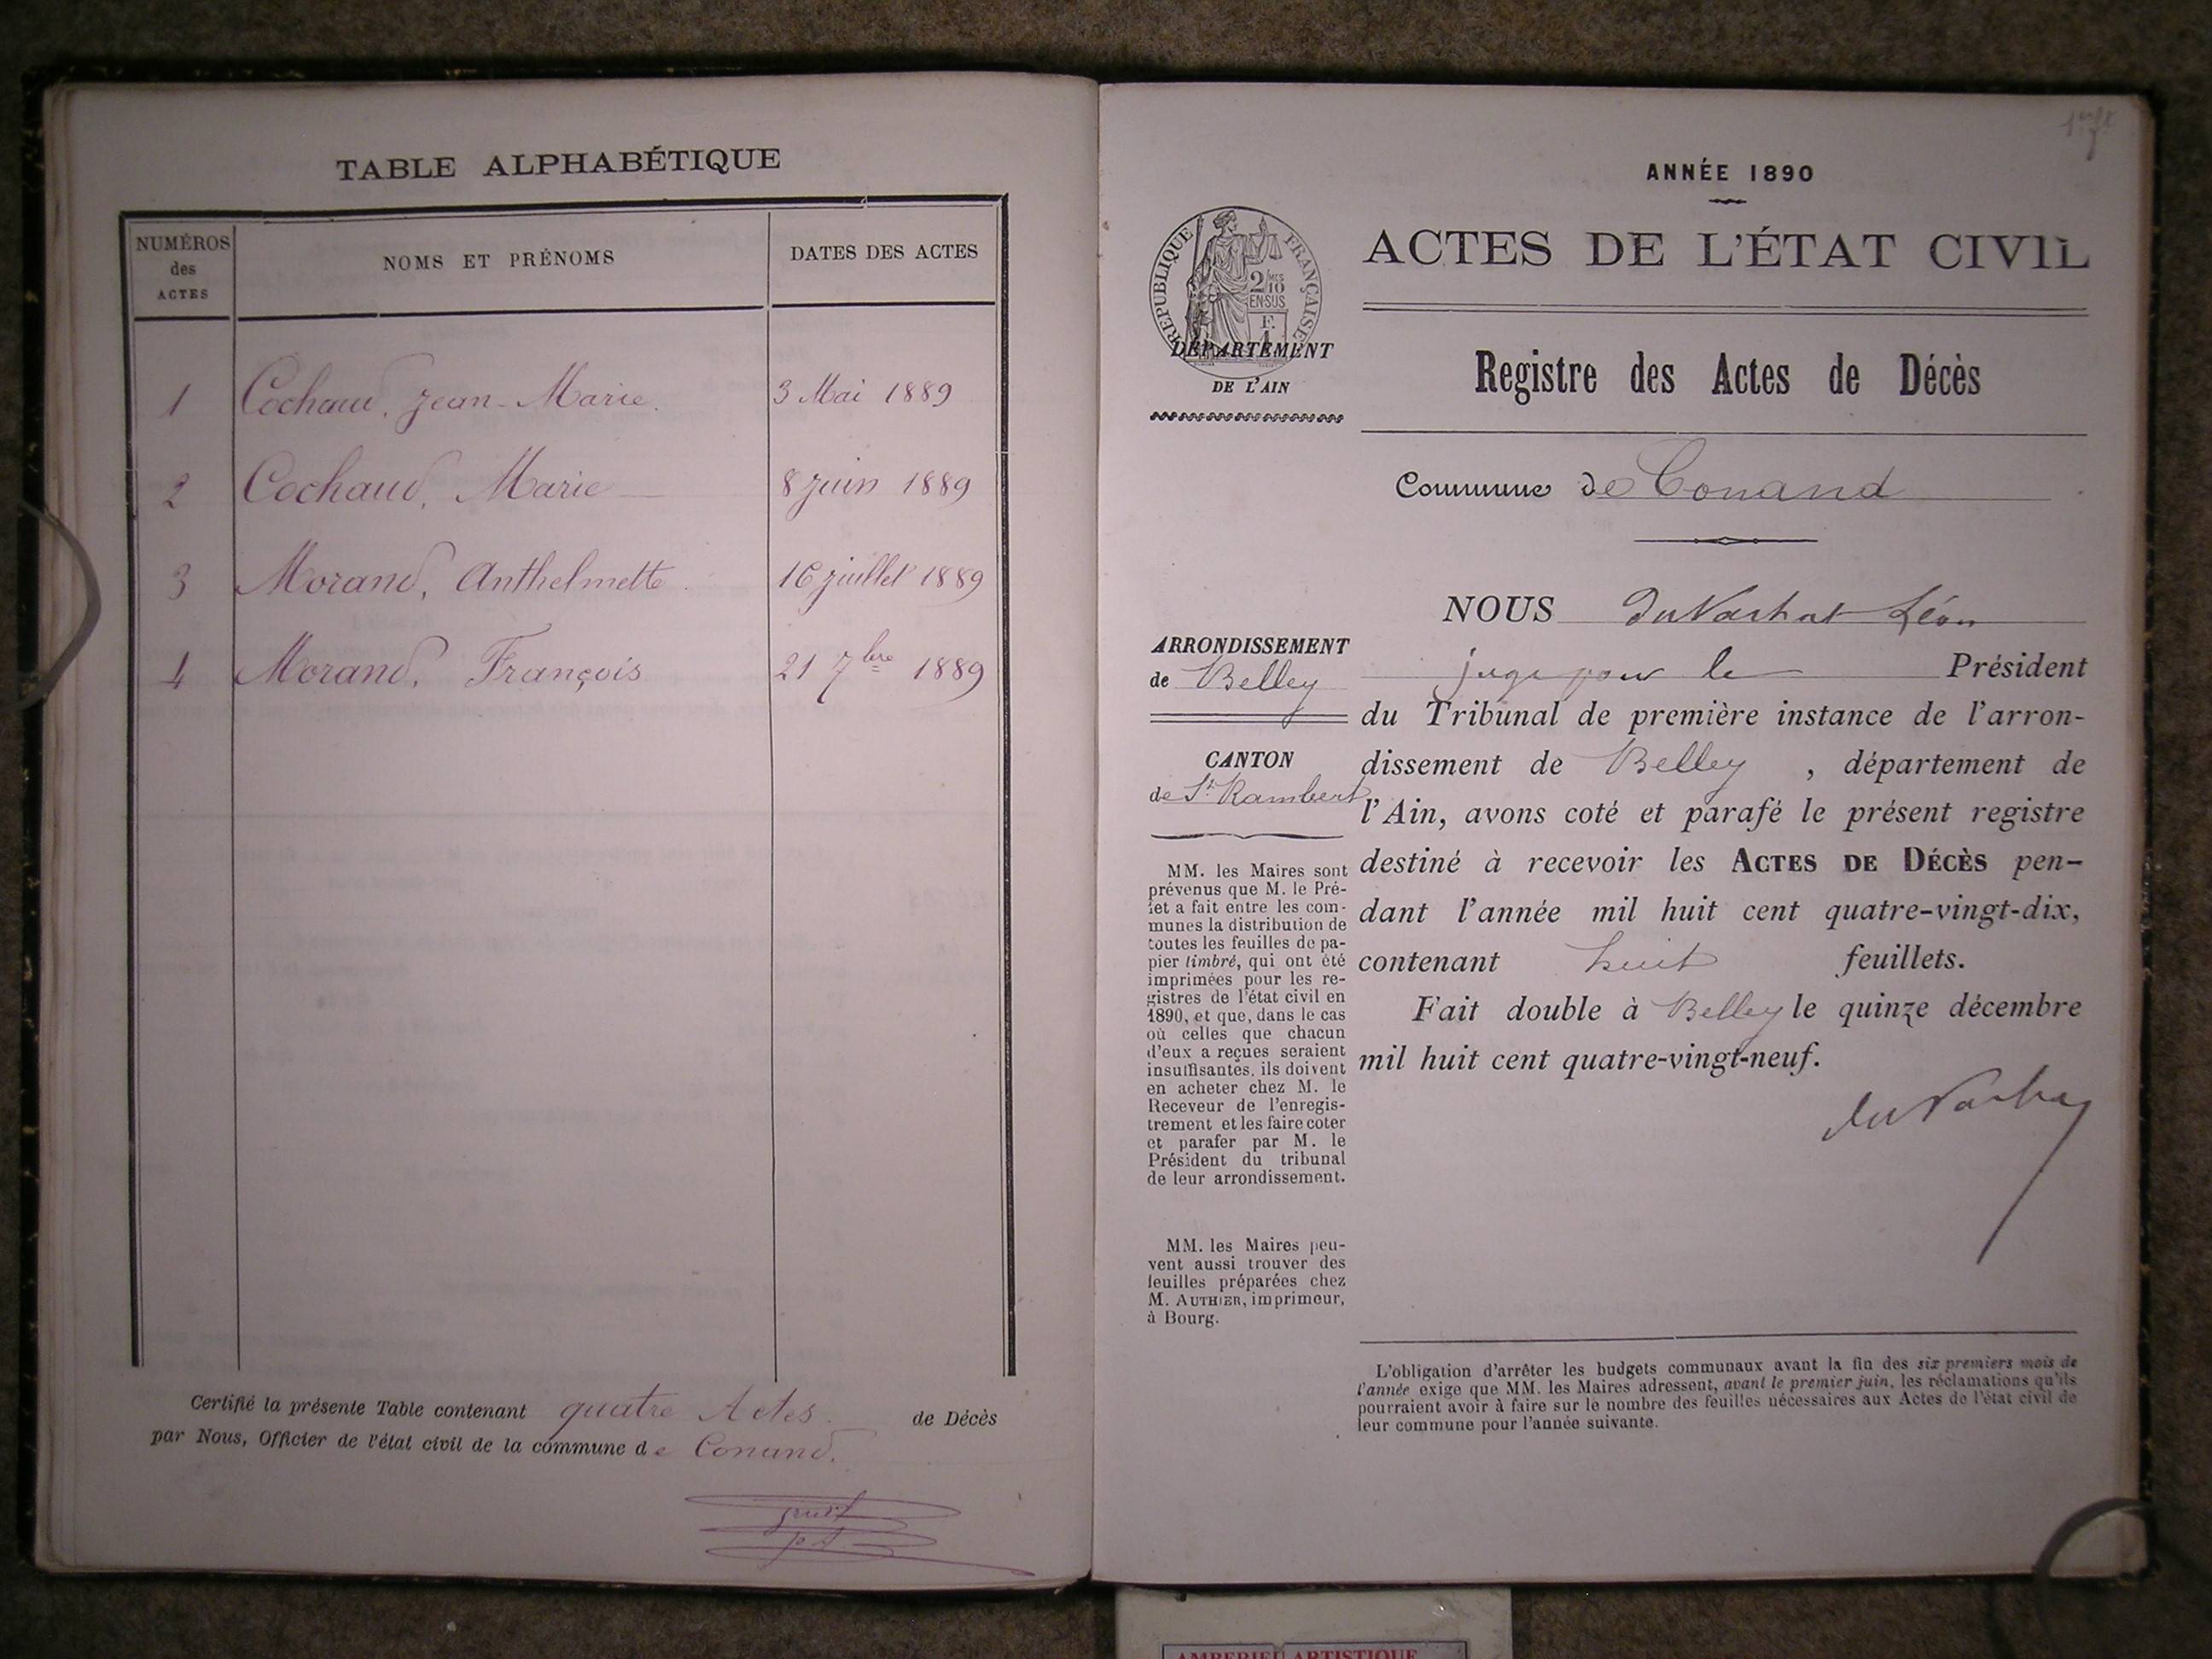 TABLE ALPHABÉTIQUE
NUMÉROS
des
ACTES
NOMS ET PRÉNOMS
DATES DES ACTES
1 Cochaud, Jean-Marie. 3 Mai 1889
2 Cochaud, Marie 8 juin 1889
3 Morand, Anthelmette 16 juillet 1889
4 Morand, François 21 7bre 1889
Certifié la présente Table contenant quatre Actes de Décès
par Nous, Officier de l'état civil de la commune de Conand.
ANNÉE 1890
ACTES DE L'ÉTAT CIVIL
RÉPUBLIQUE FRANÇAISE
2/10
EN SUS
DÉPARTEMENT
DE L'AIN
Registre des Actes de Décès
Commune de Conand
NOUS du Vachat Léon
juge pour le Président
du Tribunal de première instance de l'arron-
dissement de Belley, département de
l'Ain, avons coté et parafé le présent registre
destiné à recevoir les ACTES DE DÉCÈS pen-
dant l'année mil huit cent quatre-vingt-dix,
contenant huit feuillets.
Fait double à Belley le quinze décembre
mil huit cent quatre-vingt-neuf.
du Vachat
ARRONDISSEMENT
de Belley
CANTON
de St. Rambert
MM. les Maires sont
prévenus que M. le Pré-
fet a fait entre les com-
munes la distribution de
toutes les feuilles de pa-
pier timbré, qui ont été
imprimées pour les re-
gistres de l'état civil en
1890, et que, dans le cas
où celles que chacun
d'eux a reçues seraient
insuffisantes, ils doivent
en acheter chez M. le
Receveur de l'enregis-
trement et les faire coter
et parafer par M. le
Président du tribunal
de leur arrondissement.
MM. les Maires peu-
vent aussi trouver des
feuilles préparées chez
M. AUTHIER, imprimeur,
à Bourg.
L'obligation d'arrêter les budgets communaux avant la fin des six premiers mois de
l'année exige que MM. les Maires adressent, avant le premier juin, les réclamations qu'ils
pourraient avoir à faire sur le nombre des feuilles nécessaires aux Actes de l'état civil de
leur commune pour l'année suivante.
AMBERIEU ARTISTIQUE